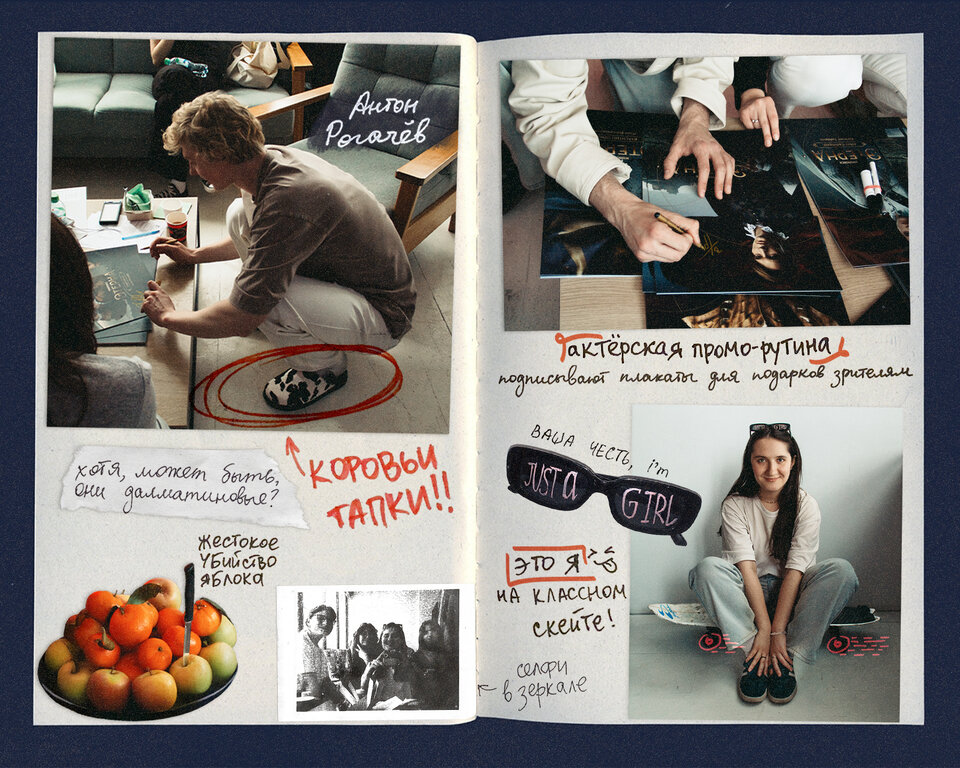 Антон
Рогачёв
КОРОВЬИ
ТАПКИ!!
хотя, может быть,
они далматиновые?
ЖЕСТОКОЕ
УБИЙСТВО
ЯБЛОКА
актёрская промо-рутина
подписывают плакаты для подарков зрителям
ВАША ЧЕСТЬ, i'm
JUST a GIRL
ЭТО Я
НА КЛАССНОМ
СКЕЙТЕ!
селфи
в зеркале